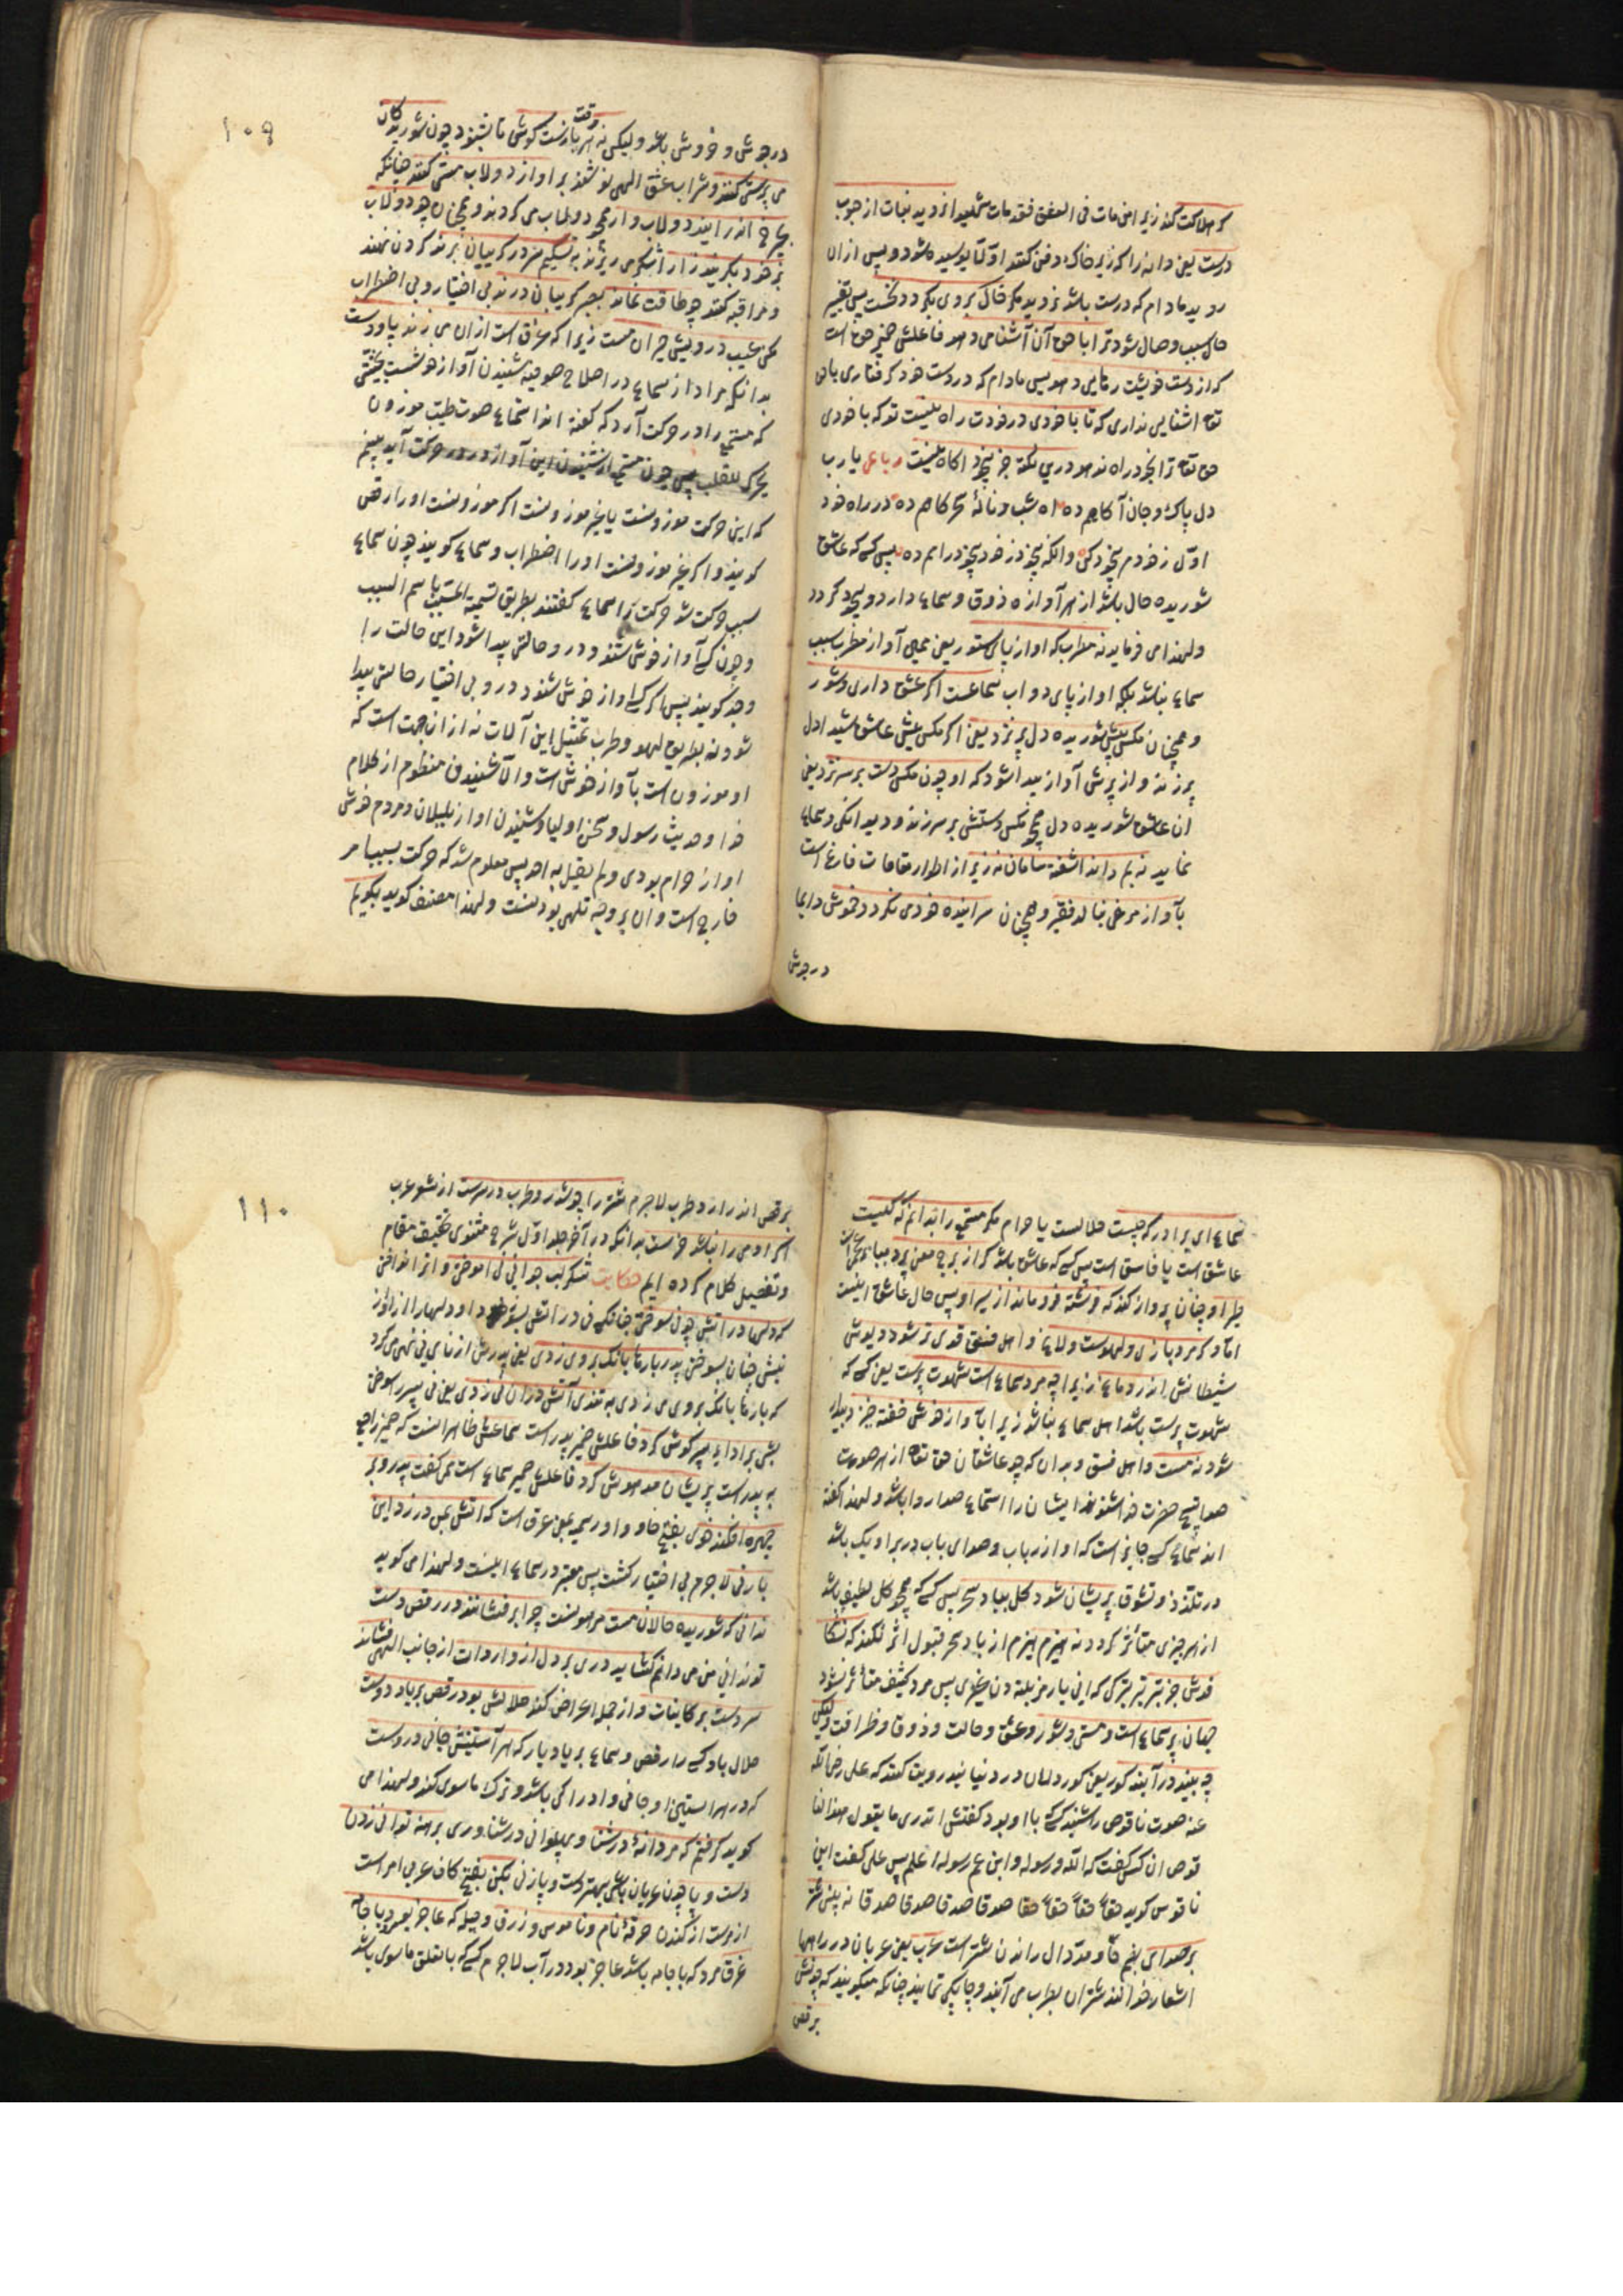 کر هلاکت کند زیرا من مات فی العشق فقد مات شهیدا نروید نبات از حبوب
درست یعنی دانه را که زیر خاک دفن کنند اولا پوسیده شود و پس ازان
روید مادام که درست باشد نروید مکر خاک بروی بکردد نخست پس تغییر
حال سبب وصال شود ترا با حق آن آشنایی دهد فاعلش ضمیر حق است
که از دست خویشت رهایی دهد پس مادام که در دست خود کرفتاری باحق
تعالی اشنایی نداری که تا باخودی در خودت راه نیست تو که باخودی
حق تعالی ترا بخود راه ندهد وزین نکته جز بیخود اکاه نیست رباعی یا رب
دل پاک و جان آکاهم ده اه شب و نالهٔ سحرکاهم ده در راه خود
اول ز خودم بیخود کن وانکه بیخود ز خود بیخود راهم ده پس کسی که عاشق
شوریده حال باشد از هر آوازه ذوق و سماع دارد و بیخود کردد
ولهذا می فرماید نه مطرب که اواز پای ستور یعنی همین آواز مطرب سبب
سماع نباشد بلکه اواز پای دواب سماعست اکر عشق داری و شور
و همچنان مکس پیش شوریده دل پر نزد یعنی اکر مکس پیش عاشق شیدا دل
پر زند و از پرش آواز پیدا شود که او چون مکس دست بر سر نزد یعنی
ان عاشق شوریده دل همچو مکس دستش بر سر زند و دیوانکی و سماع
نماید نه بم داند اشفته سامان نه زیر از اطوار مقامات فارغ است
بآواز مرغی بنالد فقیر و همچنان سراینده خود می نکردد خموش دایما
در جوش
۱۰۹
در جوش و خروش باشد ولیکن نه هر وقت بازست کوش تا بشنود چون شوریدکان
می پرستی کنند و شراب عشق الهی نوشند بر اواز دولاب مستی کنند چنانکه
بچرخ اندر ایند دولاب وار همچو دولاب می کردند و همچنان چو دولاب
بر خود بکریند زار اشک می ریزند به تسلیم سر در کریبان برند کردن نهند
و مراقبه کنند چو طاقت نماند بجیب کریبان درند بی اختیار و بی اضطراب
مکن عیب درویش حیران مست زیرا که غرق است ازان می زند پا و دست
بدانکه مراد از سماع در اصلاح صوفیه شنیدن آواز خوشست بحیثی
که مستمع را در حرکت آرد که کفته اند استماع صوت طیب موزون
یحرک القلب پس چون مستمع از شنیدن این آواز در حرکت آید بینیم
که این حرکت موزونست یا غیر موزونست اکر موزونست اورا رقص
کویند و اکر غیر موزونست اورا اضطراب و سماع کویند چون سماع
سبب حرکت شد حرکت را سماع کفتند بطریق تسمیة المسبب باسم السبب
و چون کسی آواز خوش شنود و درو حالتی پیدا شود این حالت را
وجد کویند پس اکر کسی اواز خوش شنود درو بی اختیار حالتی پیدا
شود نه بطریق لهو و طرب تمثیل این آلات نه ازان جهت است که
او موزون است بآواز خوش است والا شنیدن منظوم از کلام
خدا و حدیث رسول و سخن اولیا و شنیدن اواز بلبلان و مردم خوش
اواز حرام بودی ولم یقل به احد پس معلوم شد که حرکت بسبب امر
خارج است و ان بر وجه تلهی بودنست ولهذا مصنف کوید بکویم
سماع ای برادر که چیست حلالست یا حرام مکر مستمع را بدانم که کیست
عاشق است یا فاسق است پس کسی که عاشق باشد کر از برج معنی پرد
طیر او چنان پرواز کند که فرشته فرو ماند از سیر او پس حال عاشق اینست
اما و کر مرد بازی و لهوست ولاغ و اهل فسق قوی تر شود دیوش
شیطانش اندر دماغ زیرا چه مرد سماع است شهوت پرست یعنی کسی که
شهوت پرست باشد اهل سماع نباشد زیرا بآواز خوش خفته خیزد بیدار
شود نه مست و اهل فسق و بدان که چو عاشقان حق تعالی از هر صوت
صوا تسبیح حضرت خدا شنوند ایشان را استماع صدا روا باشد ولهذا کفته
اند سماع کسی جایز است که اواز رباب و صدای باب در برا و یک باشد
در تلذذ و تشوق پریشان شود کل بباد سحر پس کسی که همچو کل لطیف باشد
از هر چیزی متأثر کردد نه هیزم هیزم از باد سحر قبول اثر نکند که نشکا
فدش جز تبر تبر ترکی کهانی یارمز بلته دن غیری پس مرد کثیف متأثر نشود
جهان پر سماع است و مستی و شور و عشق و حالت و ذوق و ظرافت ولیکن
چه بیند در آینه کور یعنی کوردلان در دنیا نیز رویت کنند که علی رضی الله
عنه صوت ناقوس را شنید کسی با او بود کفتش اتدری ما یقول هذا النا
قوص ان کس کفت که الله و رسوله و ابن عم رسوله اعلم پس علی کفت این
ناقوس کوید حقا حقا حقا حقا صدقا صدقا صدقا صدقا نه بینی شتر
بر صدای بضم حا و مد دال راندن شتر است عرب یعنی عربان در راهها
اشعار خوانند شتران بطرب می آیند و چابکی نمایند چنانکه میکویند که چونش
برقص
۱۱۰
برقص اندر ارد طرب لاجرم شتر را چو شور و طرب در سرست از شعر عرب
اکر ادمی را نباشد خرست بدانکه در آخر جلد اول شرح مثنوی تحقیق مقام
و تفصیل کلام کرده ایم حکایت شکر لب جوانی نی اموختی و اثر انداختی
که دلها در آتش چو نی سوختی چنانکه نی در اتش بسوزد او دلهارا از اواز
نیش چنان بسوختی پدر بارها بانک بروی زدی یعنی پدرش از نای نی نهی می کرد
که بارها بانک بروی می زدی به تندی آتش دران نی زدی یعنی نی پسر را سوختی
شبی بر ادای پسر کوش کرد فاعلش ضمیر پدر است سماعش ظاهر اینست که ضمیر راجع
به پدر است پریشان و مدهوش کرد فاعلش ضمیر سماع است همی کفت پدر و بر
چهره افکنده خوی بفتح خا و واو رسمیه یعنی عرق است که اتش بمن در زد این
بار نی لاجرم بی اختیار کشت پس معتبر در سماع اینست ولهذا می کوید
ندانی که شوریده حالان مست مدهوشت چرا بر فشانند در رقص دست
تو ندانی من می دانم کشاید دری بر دل از واردات از جانب الهی فشاند
سر دست بر کاینات و از جمله اعراض کند حلالش بود رقص بر یاد دوست
حلال باد کسی را رقص و سماع بر یاد یار که هر آستینش جانی دروست
که در هر استینی او جانی و ادراکی باشد و ترک ماسوی کند ولهذا می
کوید کرفتم که مردانهٔ در شنا و پهلوانی در شناوری برهنه توانی زدن
دست و پا چون عریان باشی بهتر دست و پا زنی بکن بفتح کاف عربی امر است
از دست از کندن خرقهٔ نام و ناموس و زرق و حیله که عاجز بود با جامه
غرقا مرد که با جامه باشد عاجز بود در آب لاجرم کسی که با تعلق ماسوی باشد